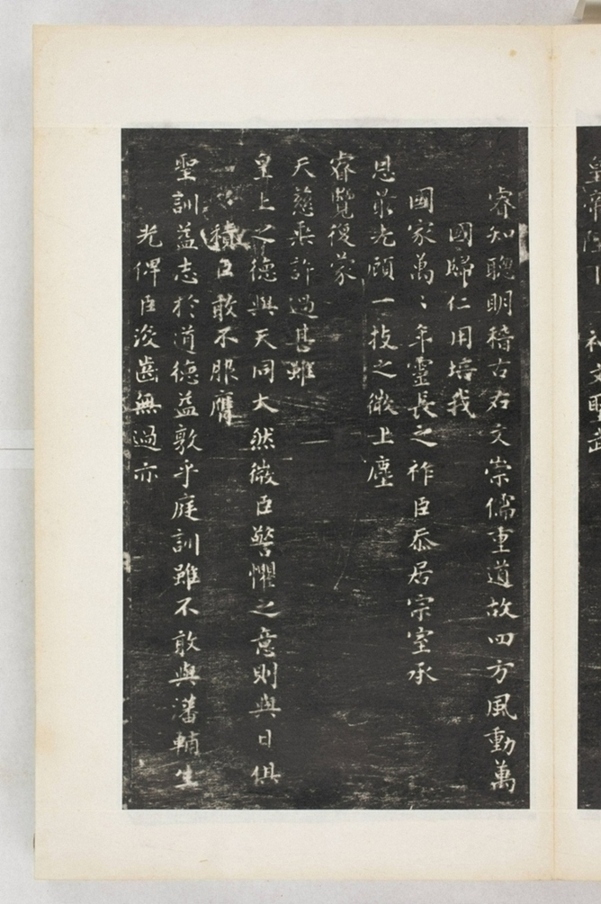 皇帝陛下 神文聖武
睿知聰明稽古右文崇儒重道故四方風動萬
國歸仁用培我
國家萬〻年靈長之祚臣忝居宗室承
恩最先顧一技之微上塵
睿覽復蒙
天慈垂許過甚雖
皇上之德與天同大然微臣警懼之意則與日俱
積臣敢不服膺
聖訓益志於道德益敦乎庭訓雖不敢與藩輔生
光俾臣沒齒無過亦